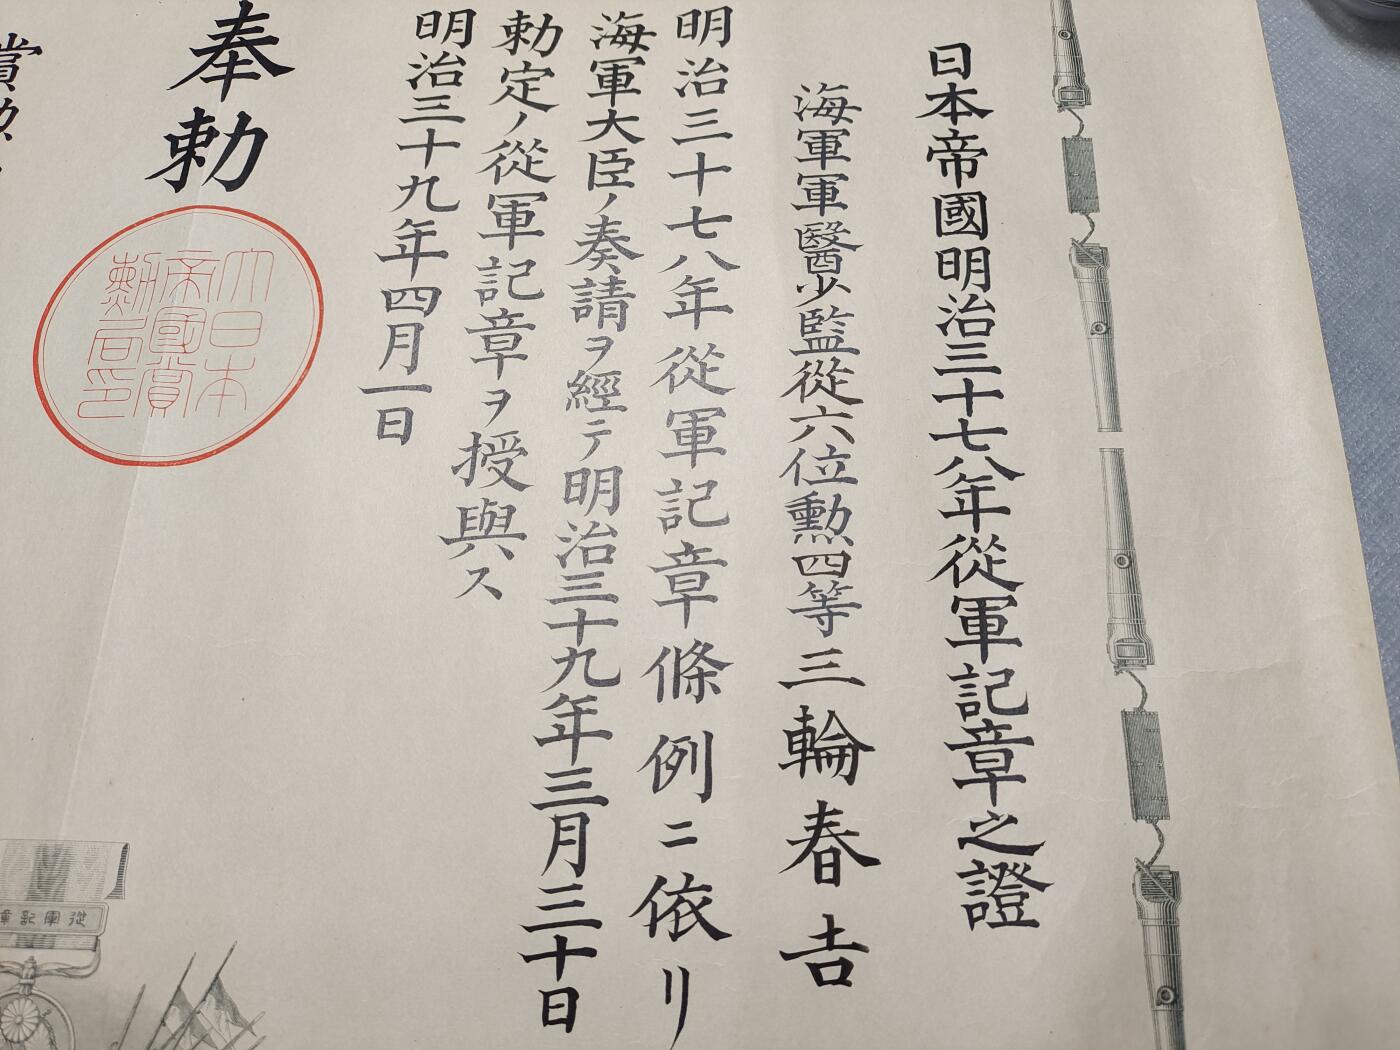 日本帝國明治三十七八年從軍記章之證
海軍軍醫少監從六位勲四等三輪春吉
明治三十七八年從軍記章條例ニ依リ
海軍大臣ノ奏請ヲ經テ明治三十九年三月三十日
勅定ノ從軍記章ヲ授與ス
明治三十九年四月一日
奉勅
大日本
帝國賞
勲局印
賞勲
從軍記章